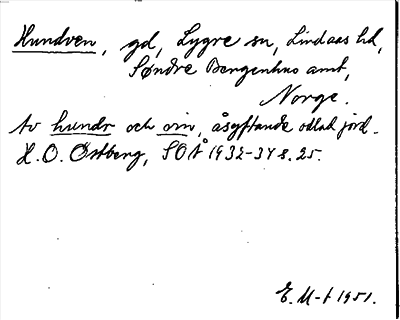 Hundven, gd, Lygre sn, Lindaas hd,
Søndre Bergenhus amt,
Norge.
Av hundr och vin, åsyftande odlad jord.
H. O. Östberg, SOÅ 1932-34 s. 25.
E. M-t 1951.